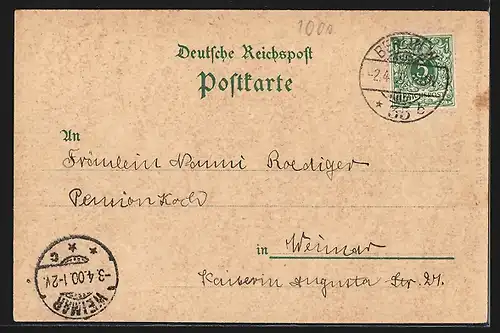 1000
Deutsche Reichspost
Postkarte
BERLIN W.
-2.4.
5
* 35 b
An
Fräulein Nanni Roediger
Pension Koch
in Weimar
Kaiserin Augusta Str. 27.
* *
-3.4.00.1-2V.
c
WEIMAR